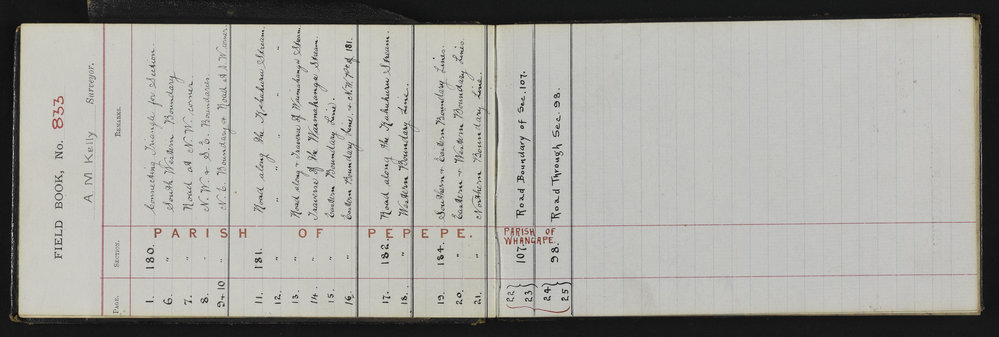 FIELD BOOK, No. 833
A M Kelly Surveyor.
PAGE. SECTION. REMARKS.
PARISH OF PEPEPE.
1. 180. Connecting Triangle for Section
6. " South Western Boundary
7. " Road at N.W. corner
8. " N.W. & S.E. Boundaries
9 & 10 " N.E. Boundary & Road at S.W. corner
11. 181. Road along the Kahuhuru Stream.
12. " " " " "
13. " Road along & Traverse of Waimahanga Stream
14. " Traverse of the Waimahanga Stream.
15. " Eastern Boundary Line.
16. " Eastern Boundary Line. & N.W. Pt of 181.
17. 182. Road along the Kahuhuru Stream.
18. " Western Boundary Line.
19. 184. Southern & Eastern Boundary Lines.
20. " Eastern & Western Boundary Lines.
21. " Northern Boundary Line.
PARISH OF
WHANGAPE.
22
23 107. Road Boundary of Sec. 107.
24
25 98. Road Through Sec. 98.